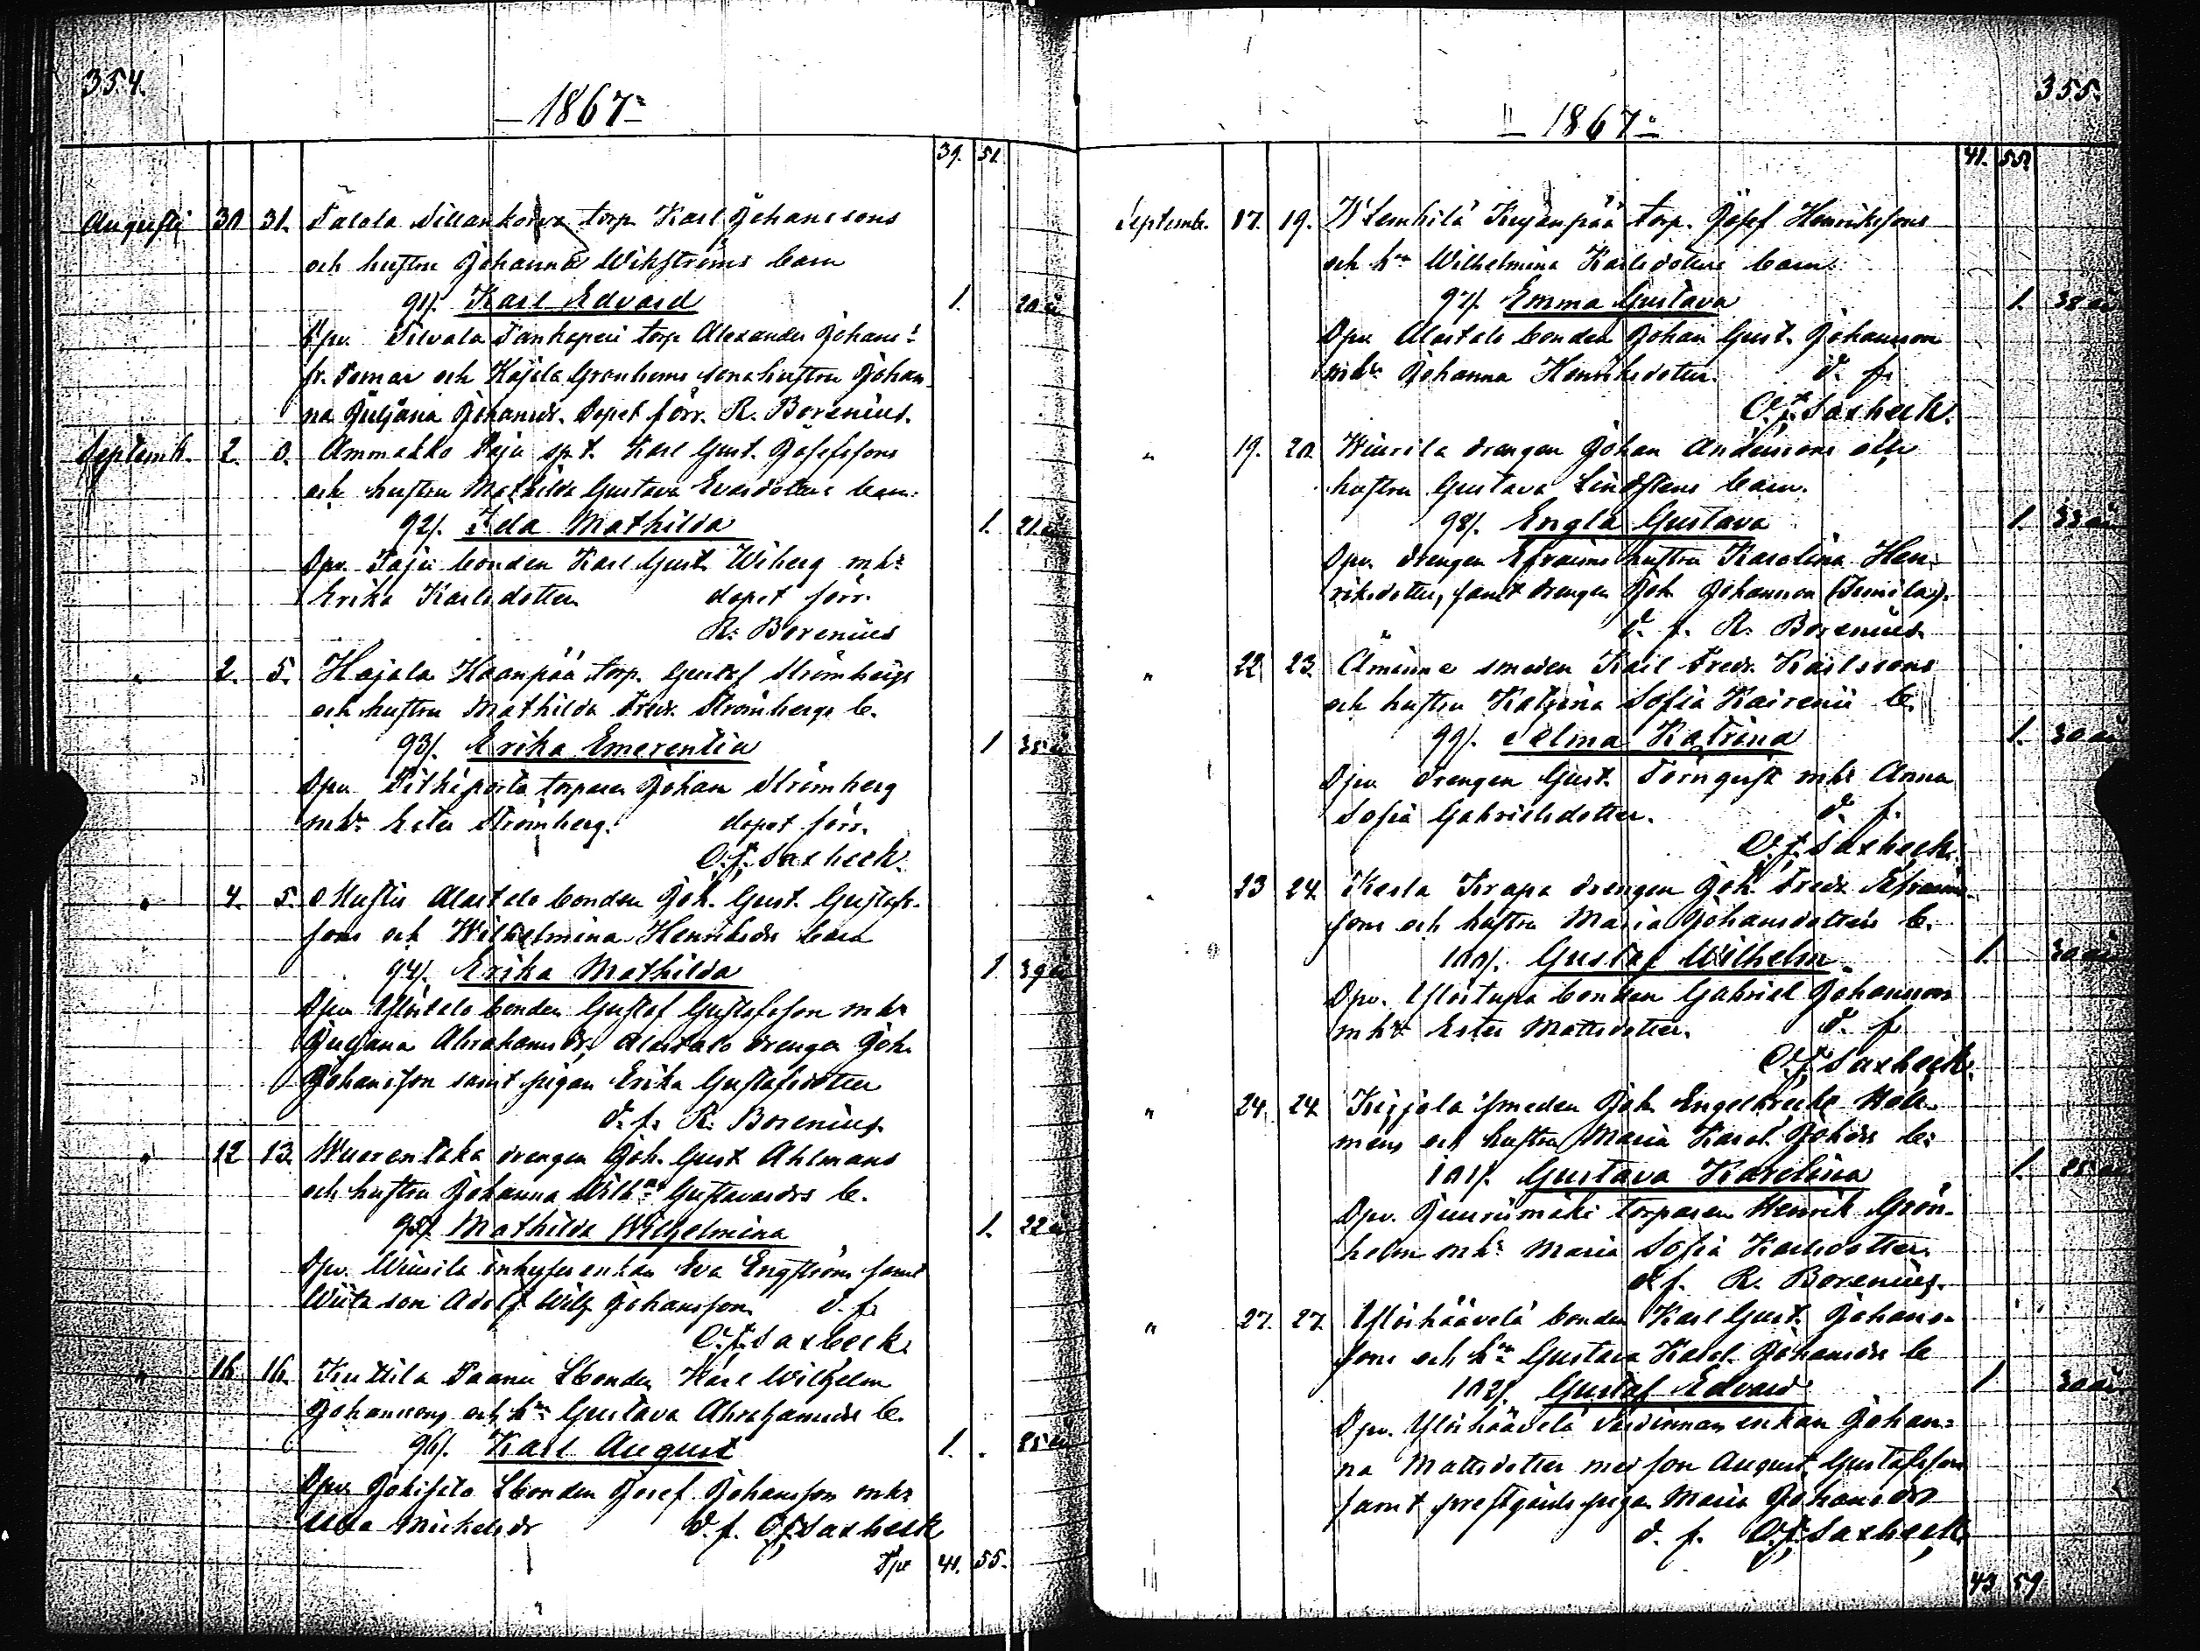 354.
1867
39. 51.
Augusti 30 31. Talola Sillankorva torp. Karl Johanssons
och hustru Johanna Wikströms barn
91/. Karl Edvard 1. 20 år
Dpv. Tilvala torp Alexander Johans:
fr. Pemar och Kajala Grönholms sonahustru Johan
na Juljana Johansdr. Döpet förr. R. Borenius.
Septemb. 2. 3. Ammakko Paju sp t. Karl Gust. Josefssons
och hustru Mathilda Gustava Evasdotters barn.
92/. Ida Mathilda 1. 21 år
Dpv. Paju bonden Karl Gust. Wiberg mhr
Erika Karlsdotter döpet förr.
R. Borenius
" 2. 5. Hajala Haanpää torp. Gustaf Strömbergs
och hustru Mathilda Fredr. Strömbergs b.
93/. Erika Emerentia 1 35 år
Dpv. torparen Johan Strömberg
mhr Ester Strömberg. döpet förr.
O. f. Saxbeck.
" 4. 5. Alastalo bonden Joh. Gust. Gustafs-
sons och Wilhelmina Henriksdrs barn
94/. Erika Mathilda 1 39 år
Dpv. Ylöstalo bonden Gustaf Gustafsson mhr
Juljana Abrahamsdr, Alastalo drengen Joh.
Johansson samt pigan Erika Gustafsdotter
d. f. R. Borenius.
" 12 13. Wuorentaka drengen Joh. Gust Ahlmans
och hustru Johanna Wilhna Gustavasdrs b.
95/. Mathilda Wilhelmina 1. 22 år
Dpv. Wiurila inhyses enkan Eva Engström samt
son Adolf Wilh. Johansson. d. f.
O. f. Saxbeck.
" 16 16. Kuttila Paanu Lbonden Karl Wilhelm
Johanssons och hru Gustava Abrahamsdrs b.
96/. Karl August 1. 25 år
Dpv. Lbonden Josef Johansson mhr
Mickelsdr d. f. O. f. Saxbeck
Dpv 41. 55.
355.
1867
41. 55
Septemb. 17. 19. Kujanpää torp. Josef Henrikssons
och hru Wilhelmina Karlsdotters barn.
97/. Emma Gustava 1. 38 år
Dpv. Alastalo bonden Johan Gust. Johansson
mhr Johanna Henriksdotter. d. f.
O. f. Saxbeck.
" 19. 20. Wiurila drengen Johan Anderssons och
hustru Gustava Lindstens barn.
98/. Engla Gustava 1. 33 år
Dpv. drengen Efraims hustru Karolina Hen-
riksdotter, samt drengen Joh. Johansson
d. f. R. Borenius.
" 22 23. Åminne smeden Karl Fredr. Karlssons
och hustru Katrina Sofia Kairenii b.
99/. Selma Katrina 1. 30 år
Dpv. drengen Gust. Törnqvist mhr Anna
Sofia Gabrielsdotter. d. f.
O. f. Saxbeck.
" 23 24. Karla Krapa drengen Joh. Fredr. Efraims-
sons och hustru Maria Johansdotters b.
100/. Gustaf Wilhelm. 1. 30 år
Dpv. Ylöstupa bonden Gabriel Johansson
mhr Ester Mattsdotter. d. f.
O. f. Saxbeck.
" 24. 24. smeden Joh. Engelbrecht Hol-
mens och hustru Maria Karol. Johdrs b.
101/. Gustava Karolina 1. 25 år
Dpv. Juurismäki torparen Henrik Grön-
holm mhr Maria Sofia Karlsdotter.
d. f. R. Borenius.
" 27. 27. bonden Karl Gust. Johans-
sons och hru Gustava Karol. Johansdrs b
102/. Gustaf Edvard 1 30 år
Dpv. värdinnan enkan Johan-
na Mattsdotter med son August Gustafsson
samt prestgårds pigan Maria Johansdr
d. f. O. f. Saxbeck.
43 59